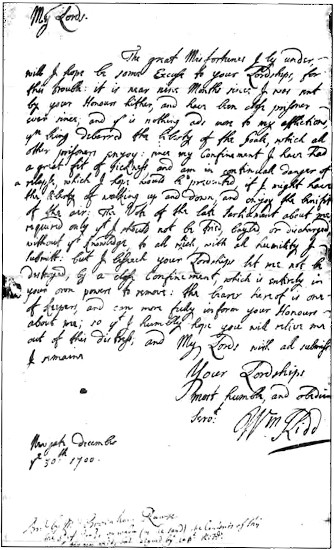 My Lords.
The great Misfortunes I ly under,
will I hope be some Excuse to your Lordships, for
this trouble: it is near nine Months since I was sent
by your Honours hither, and have been close prisoner
ever since, and yt is nothing ads more to my afflictions
yn being debarred the liberty of the Goale, which all
other prisoners enjoy: since my Confinement I have had
a great fit of sickness and am in continual danger of
a relapse, which I hope would be prevented if I might have
the liberty of walking up and down, and enjoy the benifit
of the air: The Vote of the late Parliament about me
required only yt I should not be tried bayled or discharged
without yr knowledge to all which with all humility I
submitt: but I beseech your Lordships let me not be
destroyed by a close Confinement which is entirely in
your own powers to remove: the bearer hereof is one
of keepers, and can more fully inform your Honours
about me; so yt I humbly hope you will relive me
out of this distress, and My Lords with all submiss
I remaine
Your Lordships
most humble and obedien
Servt.
Wm Kidd
Newgate Decembr
ye 30th 1700.